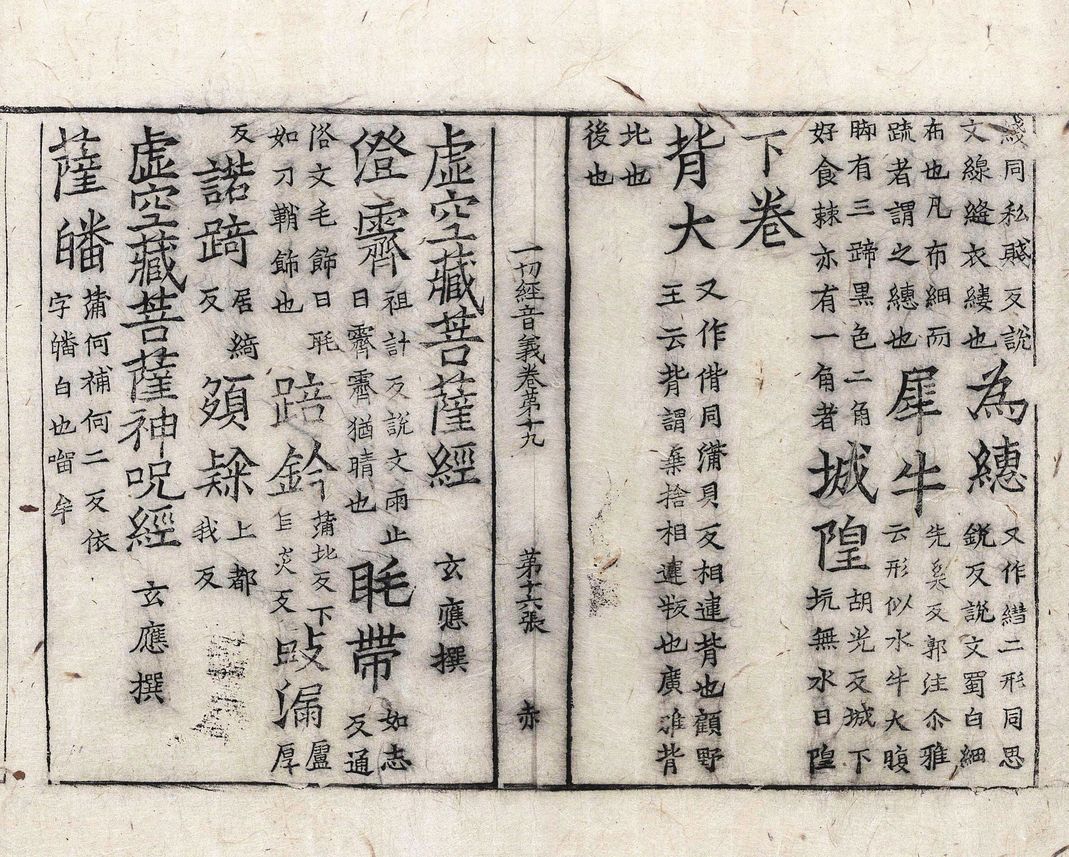 綫同私賤反說
文線縫衣縷也
為繐
又作䌢二形同思
銳反說文蜀白細
布也凡布細而
疏者謂之繐也
犀牛
先奚反郭注尒雅
云形似水牛大腹
脚有三蹄黑色二角
好食棘亦有一角者
城隍
胡光反城下
坑無水曰隍
下卷
背大
又作偝同蒲貝反相連背也顧野
王云背謂棄捨相違叛也廣雅背
北也
後也
一切經音義卷第十九 第十六張 赤
虛空藏菩薩經 玄應撰
澄霽
祖計反說文雨止
曰霽霽猶晴也
眊帶
如志
反通
俗文毛飾曰眊
如刀鞘飾也
踣鈴
蒲北反下
𠂹炎反
跂漏
盧
厚
反
諾踦
居綺
反
䫂
上都
我反
虛空藏菩薩神呪經 玄應撰
薩皤
蒲何補何二反依
字皤白也㗰牟